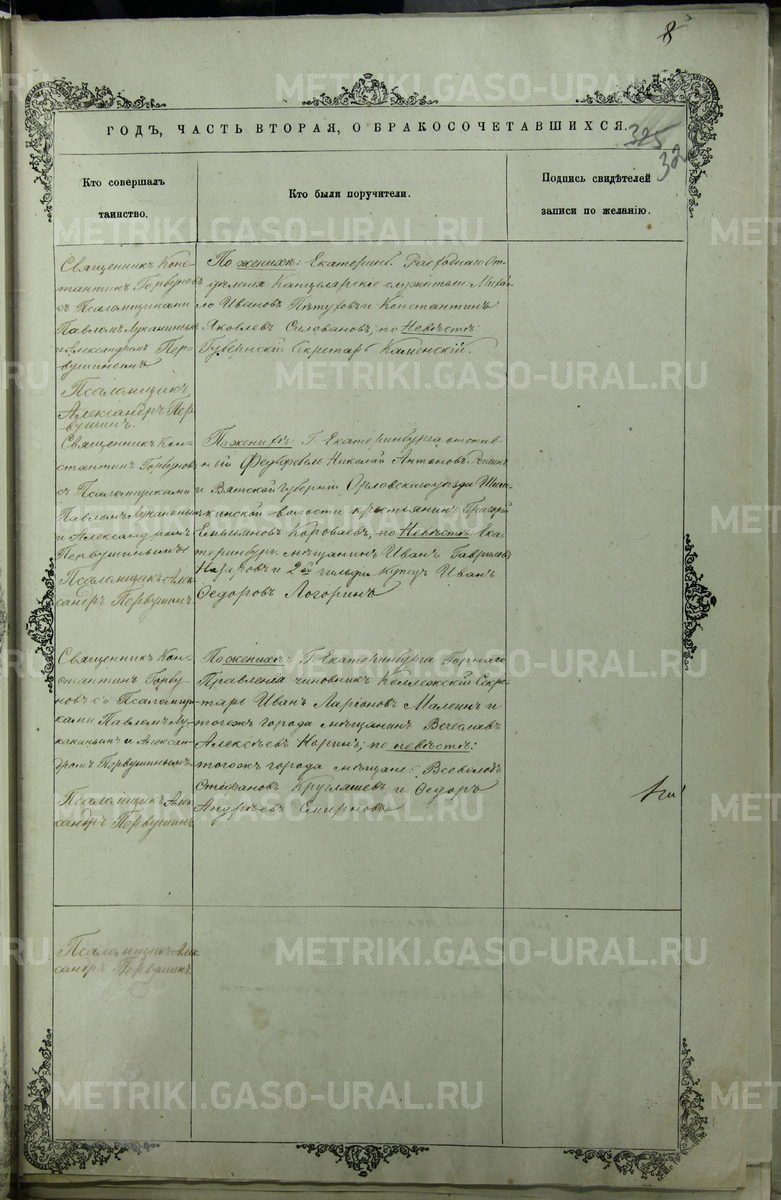 8
ГОДЪ, ЧАСТЬ ВТОРАЯ, О БРАКОСОЧЕТАВШИХСЯ.
325
32
Кто совершалъ
таинство.
Кто были поручители.
Подпись свидѣтелей
записи по желанію.
Священникъ Конс
тантинъ Горбунов
съ Псаломщиками
Павломъ Луканинымъ
и Александромъ Пер-
вушинымъ
Псаломщикъ
Александръ Пер
вушинъ.
По женихѣ: Екатеринб. Расходнаго от
дѣленія Канцелярскіе служители Михаи
ло Ивановъ Пѣтуховъ и Константинъ
Яковлевъ Силовановъ; по Невѣстѣ:
Губернскій Секретарь Каменскій.
Священникъ Кон-
стантинъ Горбуновъ
съ Псаломщиками
Павломъ Луканинымъ
и Александромъ
Первушинымъ
Псаломщикъ Алек
сандръ Первушинъ.
По женихѣ: Г. Екатеринбурга отстав
ный Фельдфебель Николай Антоновъ
и Вятской Губерніи Орловскаго уѣзда
кинской волости крестьянинъ Григорій
Емельяновъ Короваевъ; по Невѣстѣ Ека
теринбург. мѣщанинъ Иванъ Гавриловъ
Назаровъ и 2й гильдіи купецъ Иванъ
Ѳедоровъ Логоринъ
Священникъ Кон-
стантинъ Горбу
новъ съ Псаломщи
ками Павломъ Лу
канинымъ и Алексан
дромъ Первушинымъ
Псаломщикъ Алек
сандръ Первушинъ
По женихѣ: Г. Екатеринбурга Горнаго
Правленія чиновникъ Коллежскій Секре
тарь Иванъ Ларіоновъ Малеинъ и
тогожъ города мѣщанинъ Вячеславъ
Алексѣевъ Коринъ; по невѣстѣ:
тогожъ города мѣщане Всеволодъ
Стефановъ Кругляшевъ и Ѳедоръ
Андреевъ Смирновъ
Псаломщикъ Алек
сандръ Первушинъ
METRIKI.GASO-URAL.RU
METRIKI.GASO-URAL.RU
METRIKI.GASO-URAL.RU
METRIKI.GASO-URAL.RU
METRIKI.GASO-URAL.RU
METRIKI.GASO-URAL.RU
METRIKI.GASO-URAL.RU
METRIKI.GASO-URAL.RU